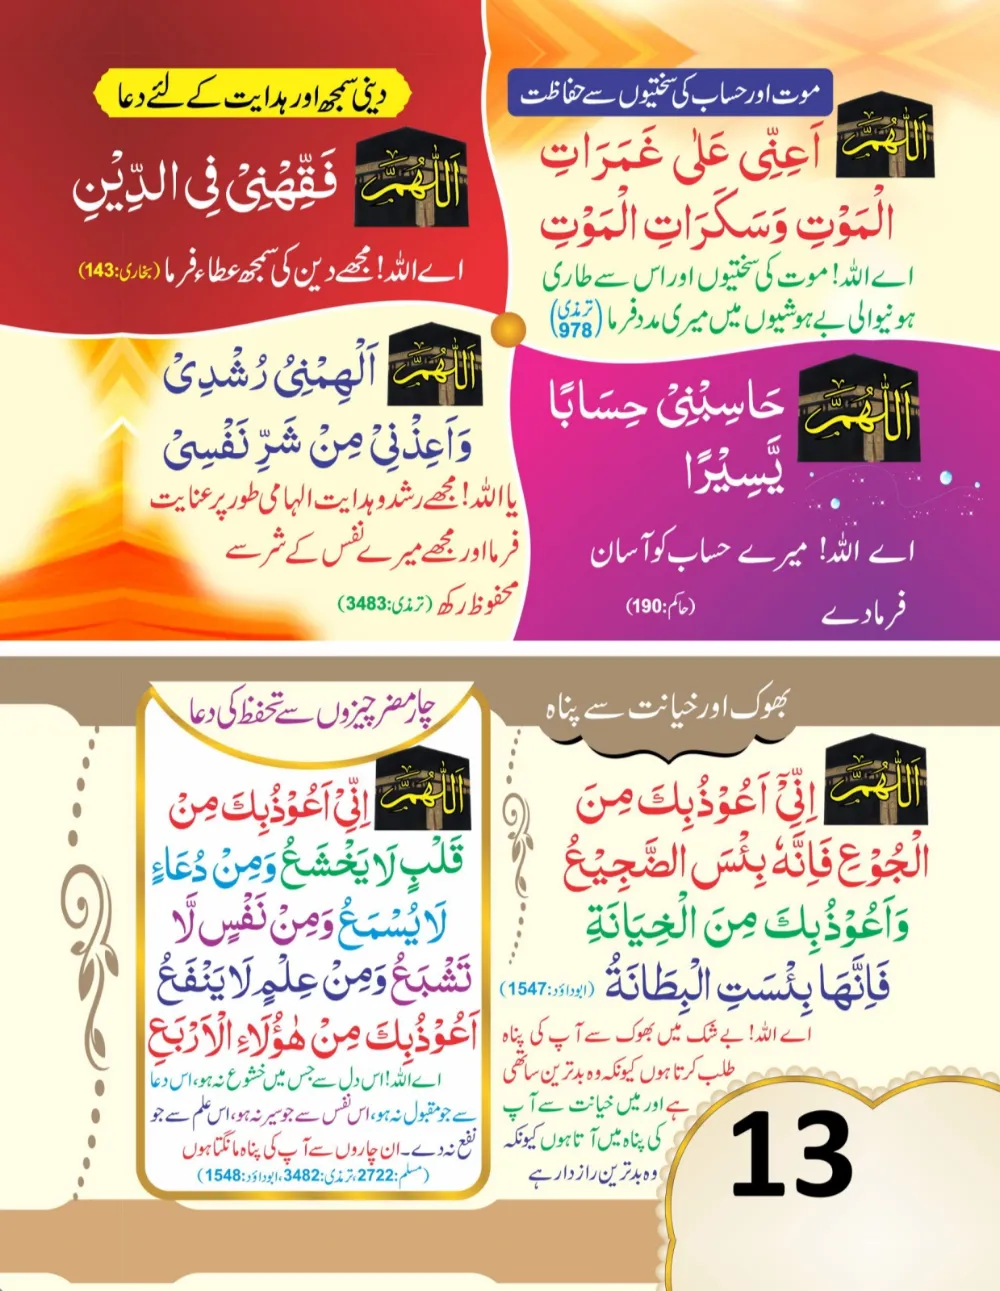 موت اور حساب کی سختیوں سے حفاظت
اَللّٰهُمَّ اَعِنِّیْ عَلٰی غَمَرَاتِ
الْمَوْتِ وَسَكَرَاتِ الْمَوْتِ
اے اللہ! موت کی سختیوں اور اس سے طاری
ہونیوالی بے ہوشیوں میں میری مدد فرما (ترمذی 978)
دینی سمجھ اور ہدایت کے لئے دعا
اَللّٰهُمَّ فَقِّهْنِیْ فِی الدِّیْنِ
اے اللہ! مجھے دین کی سمجھ عطاء فرما (بخاری:143)
اَللّٰهُمَّ حَاسِبْنِیْ حِسَابًا
یَّسِیْرًا
اے اللہ! میرے حساب کو آسان
فرمادے (حاکم:190)
اَللّٰهُمَّ اَلْهِمْنِیْ رُشْدِیْ
وَاَعِذْنِیْ مِنْ شَرِّ نَفْسِیْ
یا اللہ! مجھے رشد و ہدایت الہامی طور پر عنایت
فرما اور مجھے میرے نفس کے شر سے
محفوظ رکھ (ترمذی:3483)
بھوک اور خیانت سے پناہ
اَللّٰهُمَّ اِنِّیْٓ اَعُوْذُبِكَ مِنَ
الْجُوْعِ فَاِنَّهٗ بِئْسَ الضَّجِیْعُ
وَاَعُوْذُبِكَ مِنَ الْخِیَانَةِ
فَاِنَّهَا بِئْسَتِ الْبِطَانَةُ (ابوداؤد:1547)
اے اللہ! بے شک میں بھوک سے آپ کی پناہ
طلب کرتا ہوں کیونکہ وہ بدترین ساتھی
ہے اور میں خیانت سے آپ
کی پناہ میں آتا ہوں کیونکہ
وہ بدترین رازدار ہے
چار مضر چیزوں سے تحفظ کی دعا
اَللّٰهُمَّ اِنِّیْ اَعُوْذُبِكَ مِنْ
قَلْبٍ لَا یَخْشَعُ وَمِنْ دُعَاءٍ
لَا یُسْمَعُ وَمِنْ نَفْسٍ لَّا
تَشْبَعُ وَمِنْ عِلْمٍ لَا یَنْفَعُ
اَعُوْذُبِكَ مِنْ هٰؤُلَاءِ الْاَرْبَعِ
اے اللہ! اس دل سے جس میں خشوع نہ ہو، اس دعا
سے جو مقبول نہ ہو، اس نفس سے جو سیر نہ ہو، اس علم سے جو
نفع نہ دے۔ ان چاروں سے آپ کی پناہ مانگتا ہوں
(مسلم:2722، ترمذی:3482، ابوداؤد:1548)
13